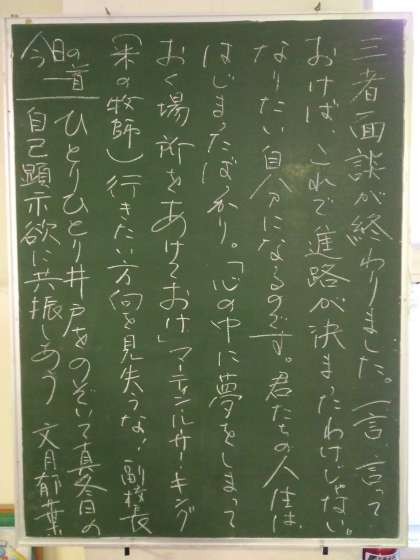 三者面談が終わりました。一言、言って
おけば、これで進路が決まったわけじゃない。
なりたい自分になるのです。君たちの人生は、
はじまったばっかり。「心の中に夢をしまって
おく場所をあけておけ」マーティンルーサーキング
(米の牧師)行きたい方向を見失うな、副校長
今日の一首
ひとりひとり井戸をのぞいて真冬日の
自己顕示欲に共振しあう 文月郁葉